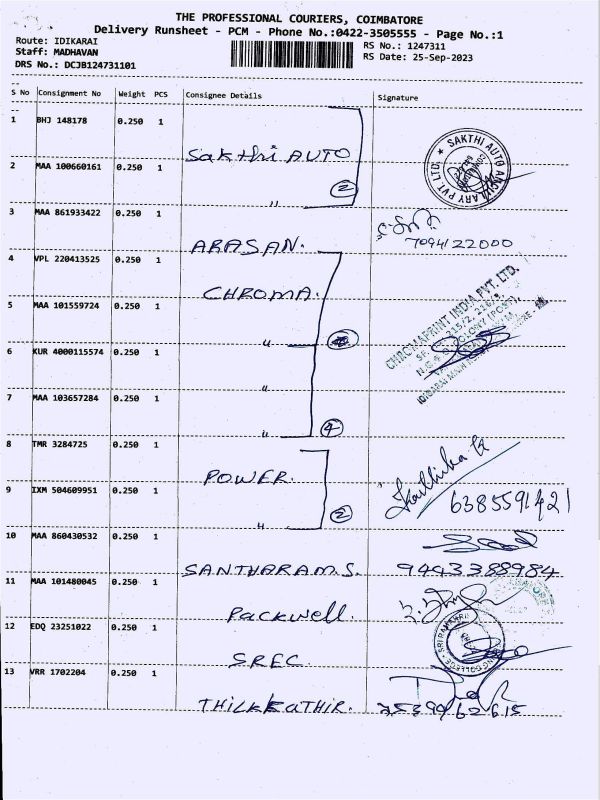 THE PROFESSIONAL COURIERS, COIMBATORE
Delivery Runsheet - PCM - Phone No.:0422-3505555 - Page No.:1
Route: IDIKARAI RS No.: 1247311
Staff: MADHAVAN RS Date: 25-Sep-2023
DRS No.: DCJB124731101
S No Consignment No Weight PCS Consignee Details Signature
1 BHJ 148178 0.250 1
Sakthi AUTO
SAKTHI AUTO ANCILLARY PVT. LTD.
2 MAA 100660161 0.250 1
2
"
3 MAA 861933422 0.250 1
ARASAN. 7094122000
4 VPL 220413525 0.250 1
CHROMA.
CHROMAPRINT INDIA PVT. LTD.
5 MAA 101559724 0.250 1
"
6 KUR 4000115574 0.250 1
"
7 MAA 103657284 0.250 1
" 4
8 TMR 3284725 0.250 1
POWER. Karthika K
9 IXM 504609951 0.250 1
6385591421
" 2
10 MAA 860430532 0.250 1
SANTHARAM.S. 9443388984
11 MAA 101480045 0.250 1
Packwell.
12 EDQ 23251022 0.250 1
SREC.
13 VRR 1702204 0.250 1
THILKKATHIR.